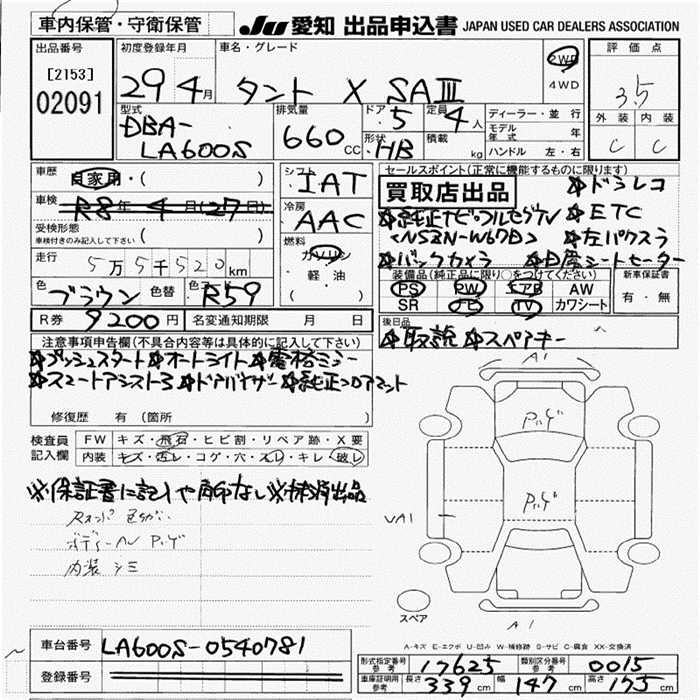 車内保管・守衛保管
JU 愛知 出品申込書 JAPAN USED CAR DEALERS ASSOCIATION
出品番号 初度登録年月 車名・グレード 2WD 4WD 評価点
[2153]
02091
29 4月 タント X SAⅢ 3.5
外装 内装
C C
型式 排気量 ドア 定員 ディーラー・並行
DBA-LA600S 660CC 5 4人
モデル年式 年
形状 HB 積載 kg ハンドル 左・右
車歴 自家用・( )
シフト IAT
セールスポイント(正常に機能するものに限ります)
買取店出品
☆ドラレコ
車検 R8年 4月(27日)
冷房 AAC
☆純正ナビ・フルセグTV ☆ETC
受検形態 ( )
車検付きのみ記入して下さい
<NSZN-W67D> ☆左パワスラ
走行 5万5千520km
燃料 ガソリン・軽油
☆バックカメラ
装備品(純正品に限り○をつけてください) 新車保証書
PS PW エアB AW 有・無
SR TV カワシート
色 ブラウン 色替 色コード R59
R券 9200円 名変通知期限 月 日
後日品
☆取説 ☆スペアキー
注意事項申告欄(不具合内容等は具体的に記入して下さい)
☆プッシュスタート ☆オートライト ☆電格ミラー
☆スマートアシスト3 ☆ドアバイザー ☆純正フロアマット
修復歴 有 (箇所 )
検査員記入欄
FW キズ・飛石・ヒビ割・リペア跡・X要
内装 キズ・汚レ・コゲ・穴・スレ・キレ・破レ
※保証書に記入や角印なし
ボディー
内装 シミ
A1
UA1
スペア
A1
A-キズ E-エクボ U-凹み W-補修跡 S-サビ C-腐食 XX-交換済
車台番号 LA600S-0540781
登録番号
形式指定番号 参考 17625 類別区分番号 参考 0015
車庫証明用 参考 長さ 339cm 幅 147cm 高さ 175cm